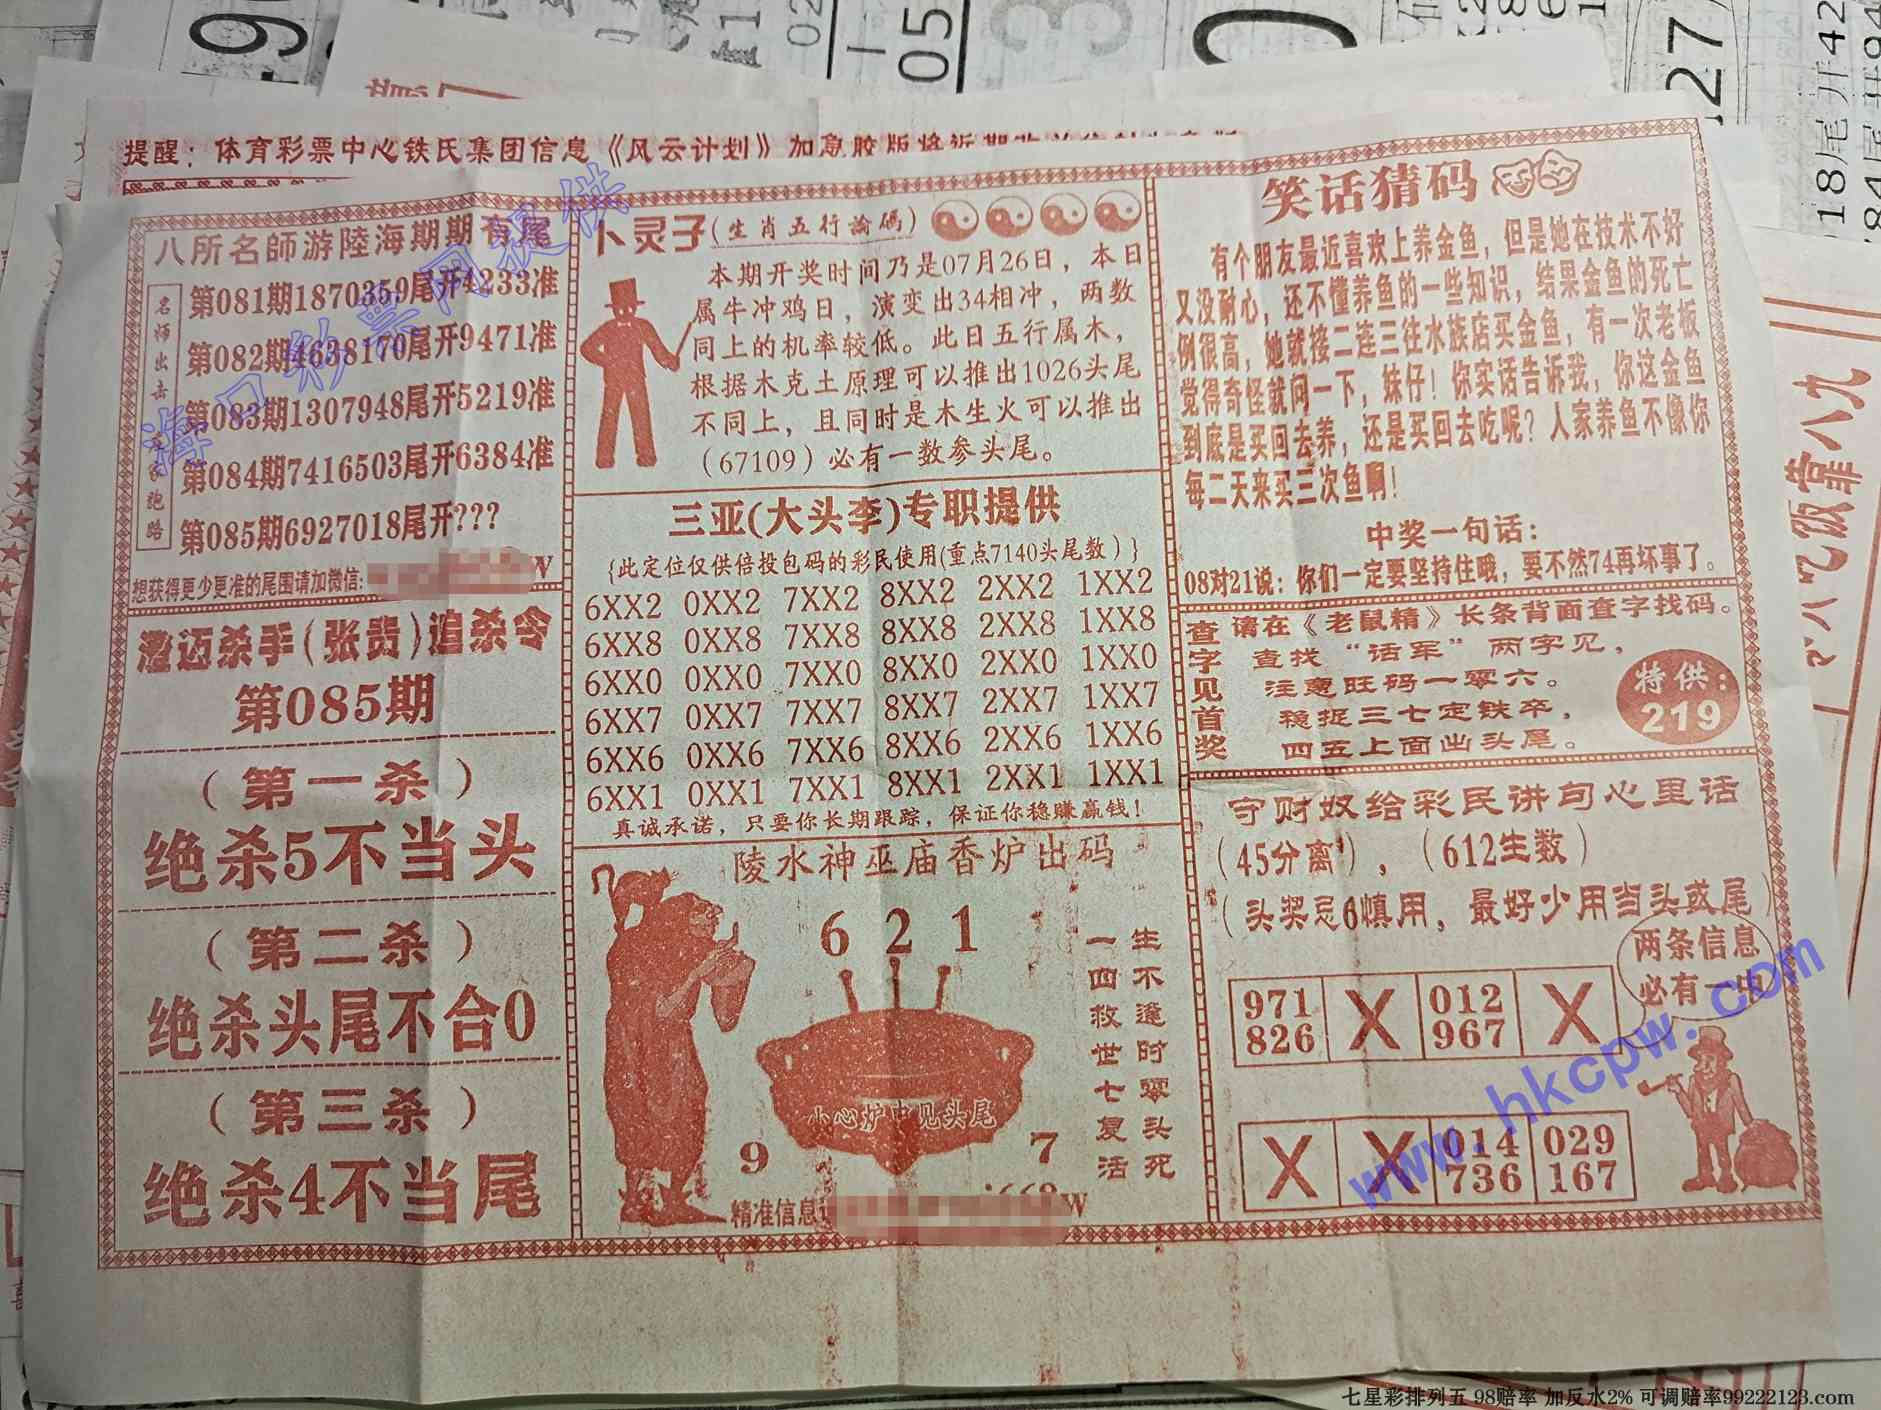 提醒：体育彩票中心铁氏集团信息《风云计划》加急胶版将近期
八所名師游陸海期期有尾
名师出击
跑路
第081期1870359尾开4233准
第082期4638170尾开9471准
第083期1307948尾开5219准
第084期7416503尾开6384准
第085期6927018尾开???
想获得更少更准的尾围请加微信:
W
澄迈杀手(张贵)追杀令
第085期
（第一杀）
绝杀5不当头
（第二杀）
绝杀头尾不合0
（第三杀）
绝杀4不当尾
卜灵子(生肖五行論碼)
本期开奖时间乃是07月26日，本日
属牛冲鸡日，演变出34相冲，两数
同上的机率较低。此日五行属木，
根据木克土原理可以推出1026头尾
不同上，且同时是木生火可以推出
（67109）必有一数参头尾。
三亚(大头李)专职提供
{此定位仅供倍投包码的彩民使用(重点7140头尾数）}
6XX2 0XX2 7XX2 8XX2 2XX2 1XX2
6XX8 0XX8 7XX8 8XX8 2XX8 1XX8
6XX0 0XX0 7XX0 8XX0 2XX0 1XX0
6XX7 0XX7 7XX7 8XX7 2XX7 1XX7
6XX6 0XX6 7XX6 8XX6 2XX6 1XX6
6XX1 0XX1 7XX1 8XX1 2XX1 1XX1
真诚承诺，只要你长期跟踪，保证你稳赚赢钱！
陵水神巫庙香炉出码
6 2 1
生不逢时零头死
一四救世七复活
小心炉中见头尾
9
7
精准信息
W
笑话猜码
有个朋友最近喜欢上养金鱼，但是她在技术不好
又没耐心，还不懂养鱼的一些知识，结果金鱼的死亡
例很高，她就接二连三往水族店买金鱼，有一次老板
觉得奇怪就问一下，妹仔！你实话告诉我，你这金鱼
到底是买回去养，还是买回去吃呢？人家养鱼不像你
每二天来买三次鱼啊！
中奖一句话：
08对21说：你们一定要坚持住哦，要不然74再坏事了。
查字见首奖
请在《老鼠精》长条背面查字找码。
查找“话军”两字见，
注意旺码一零六。
稳捉三七定铁卒，
四五上面出头尾。
特供：
219
守财奴给彩民讲句心里话
（45分离），（612生数）
（头奖忌6慎用，最好少用当头或尾）
两条信息
必有一中
971 X 012 X
826 967
X X 014 029
736 167
海口彩票网提供
www.hkcpw.com
七星彩排列五 98赔率 加反水2% 可调赔率99222123.com
18尾开42
05
27